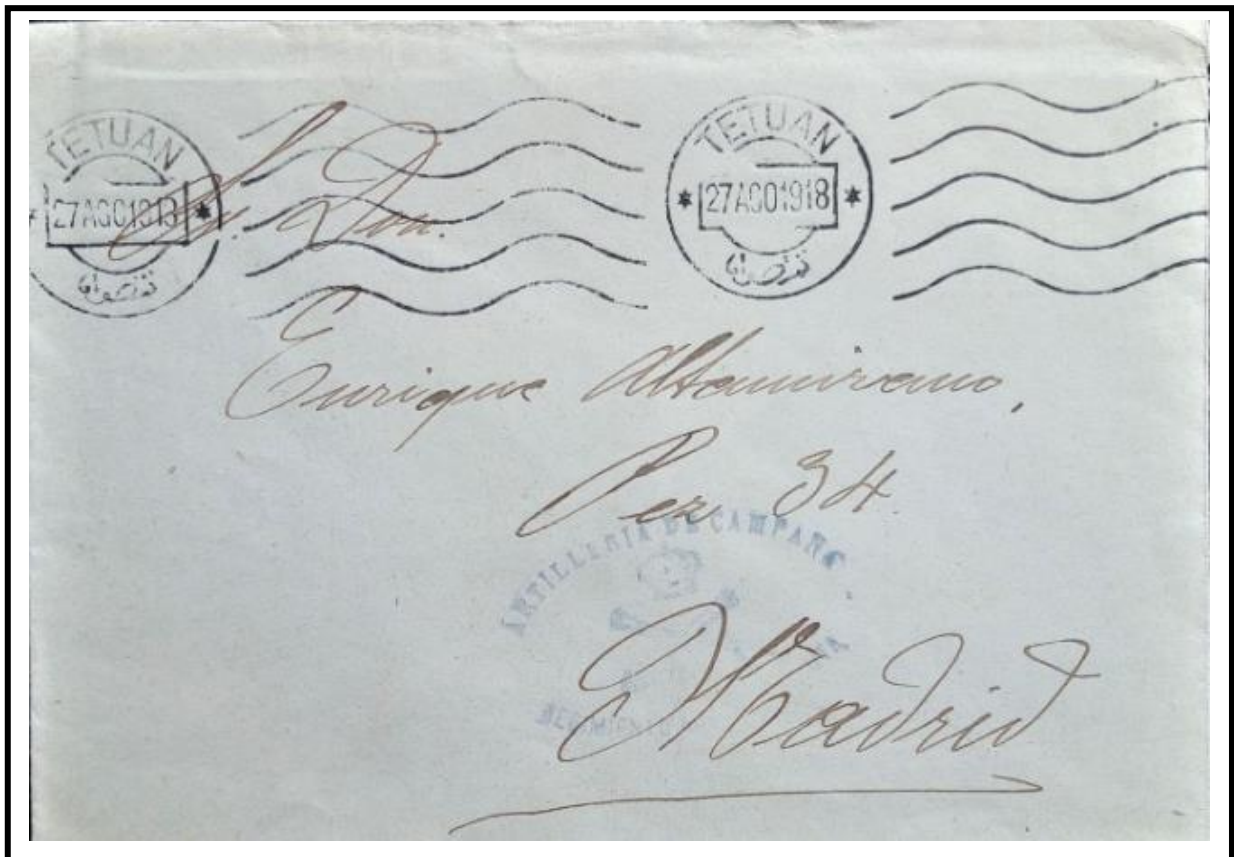 TETUAN
27AGO1918
تطوان
TETUAN
27AGO1918
تطوان
Sr. Don.
Enrique Altamirano,
Pez 34.
ARTILLERIA DE CAMPAÑA
REGIMIENTO
Madrid